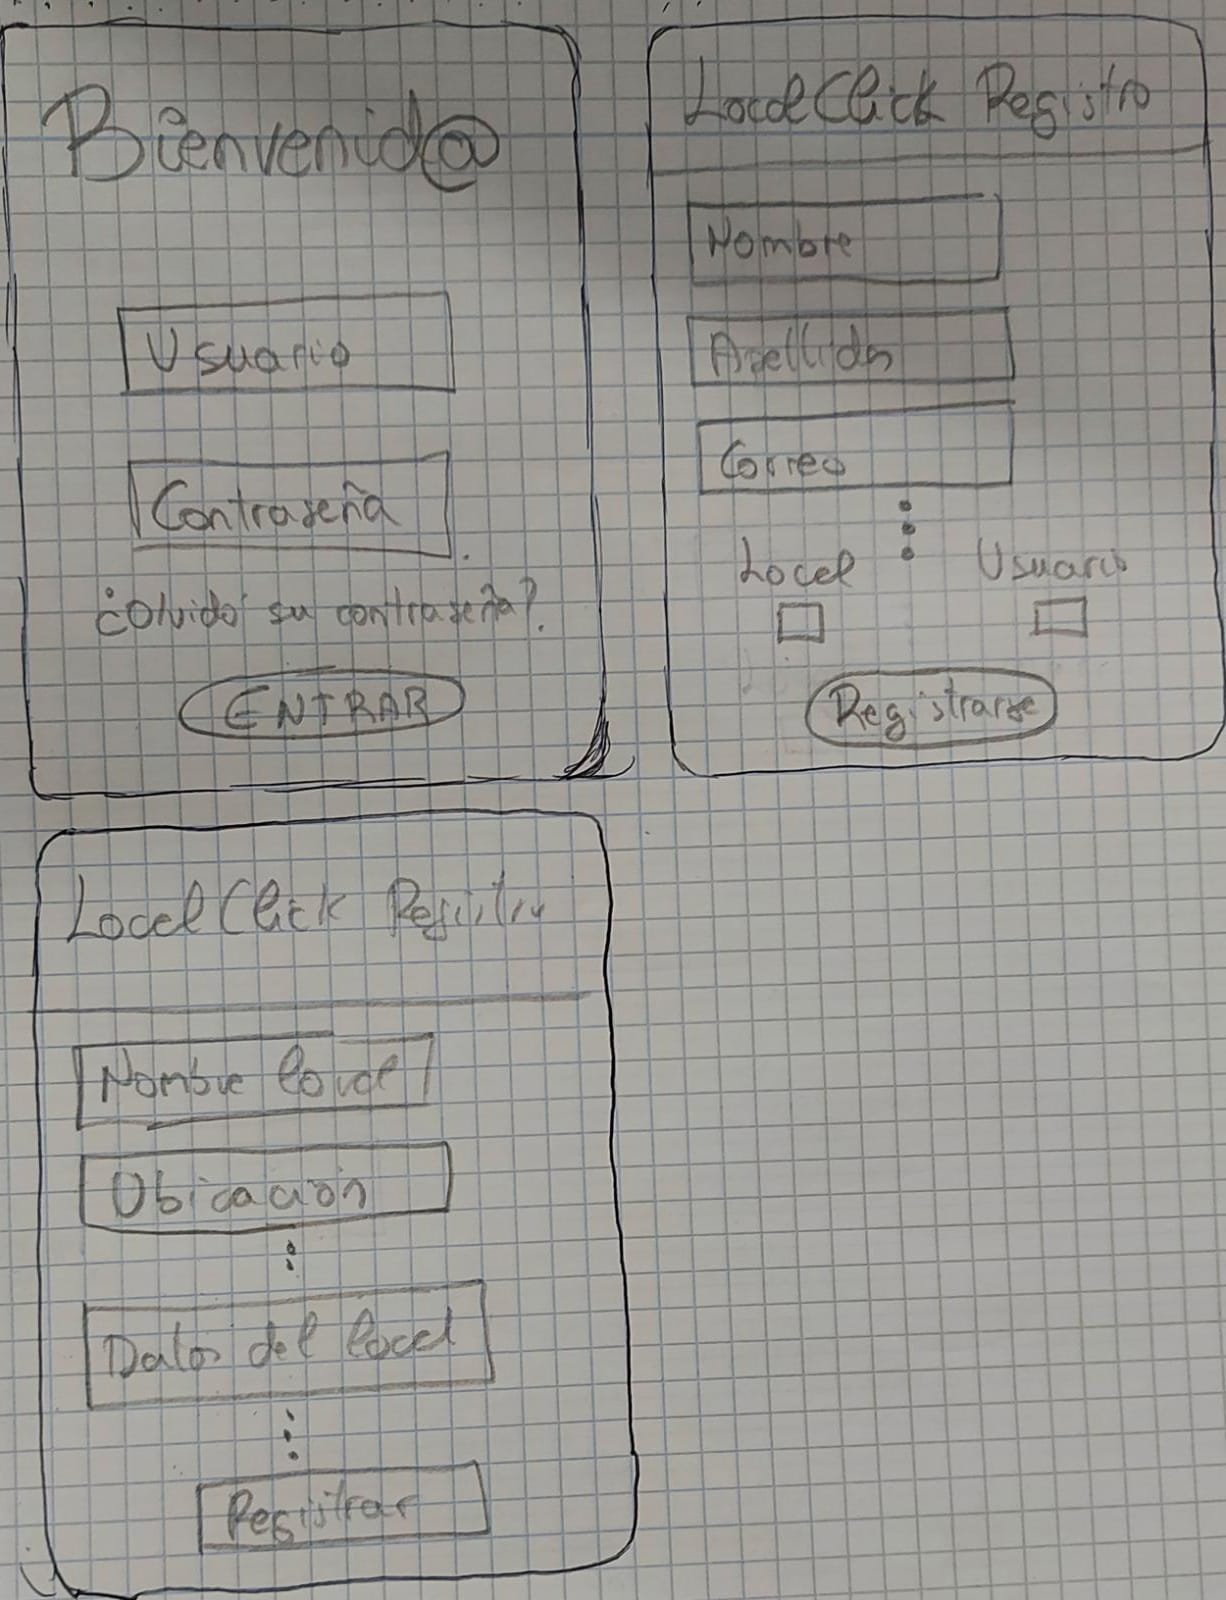 Bienvenid@
Usuario
Contraseña
¿Olvido su contraseña?
ENTRAR
LocalClick Registro
Nombre
Apellidos
Correo
Local
Usuario
Registrarse
LocalClick Registro
Nombre local
Ubicación
Datos del local
Registrar